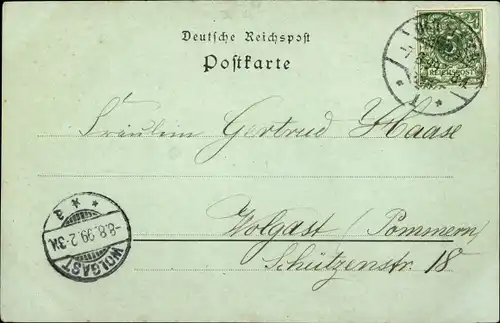 Deutsche Reichspost
Postkarte
5
REICHSPOST
Fräulein Gertrud Haase
Wolgast (Pommern)
Schützenstr. 18
WOLGAST
-8.8.99.2-3N.
* * a